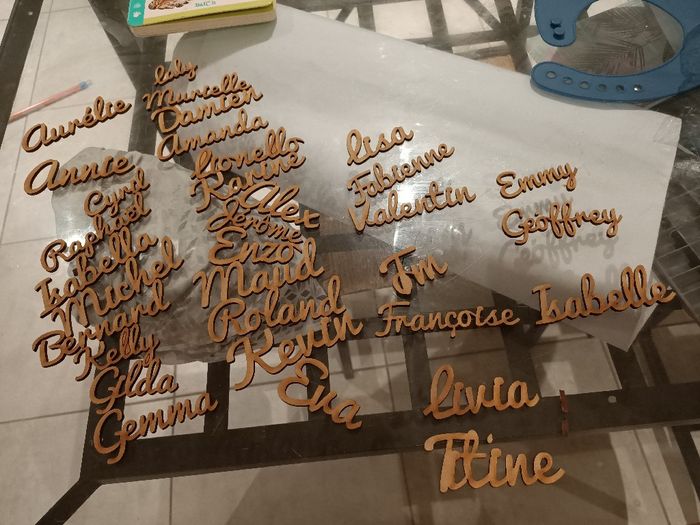 Aurélie
Annie
Cyril
Raphaël
Isabella
Michel
Bernard
Kelly
Gilda
Gemma
laly
Murielle
Damien
Amanda
Lionello
Karine
Alex
Jérôme
Enzo
Maud
Roland
Kevin
Eva
lisa
Fabienne
Valentin
Jm
Françoise
livia
Titine
Emmy
Geoffrey
Isabelle